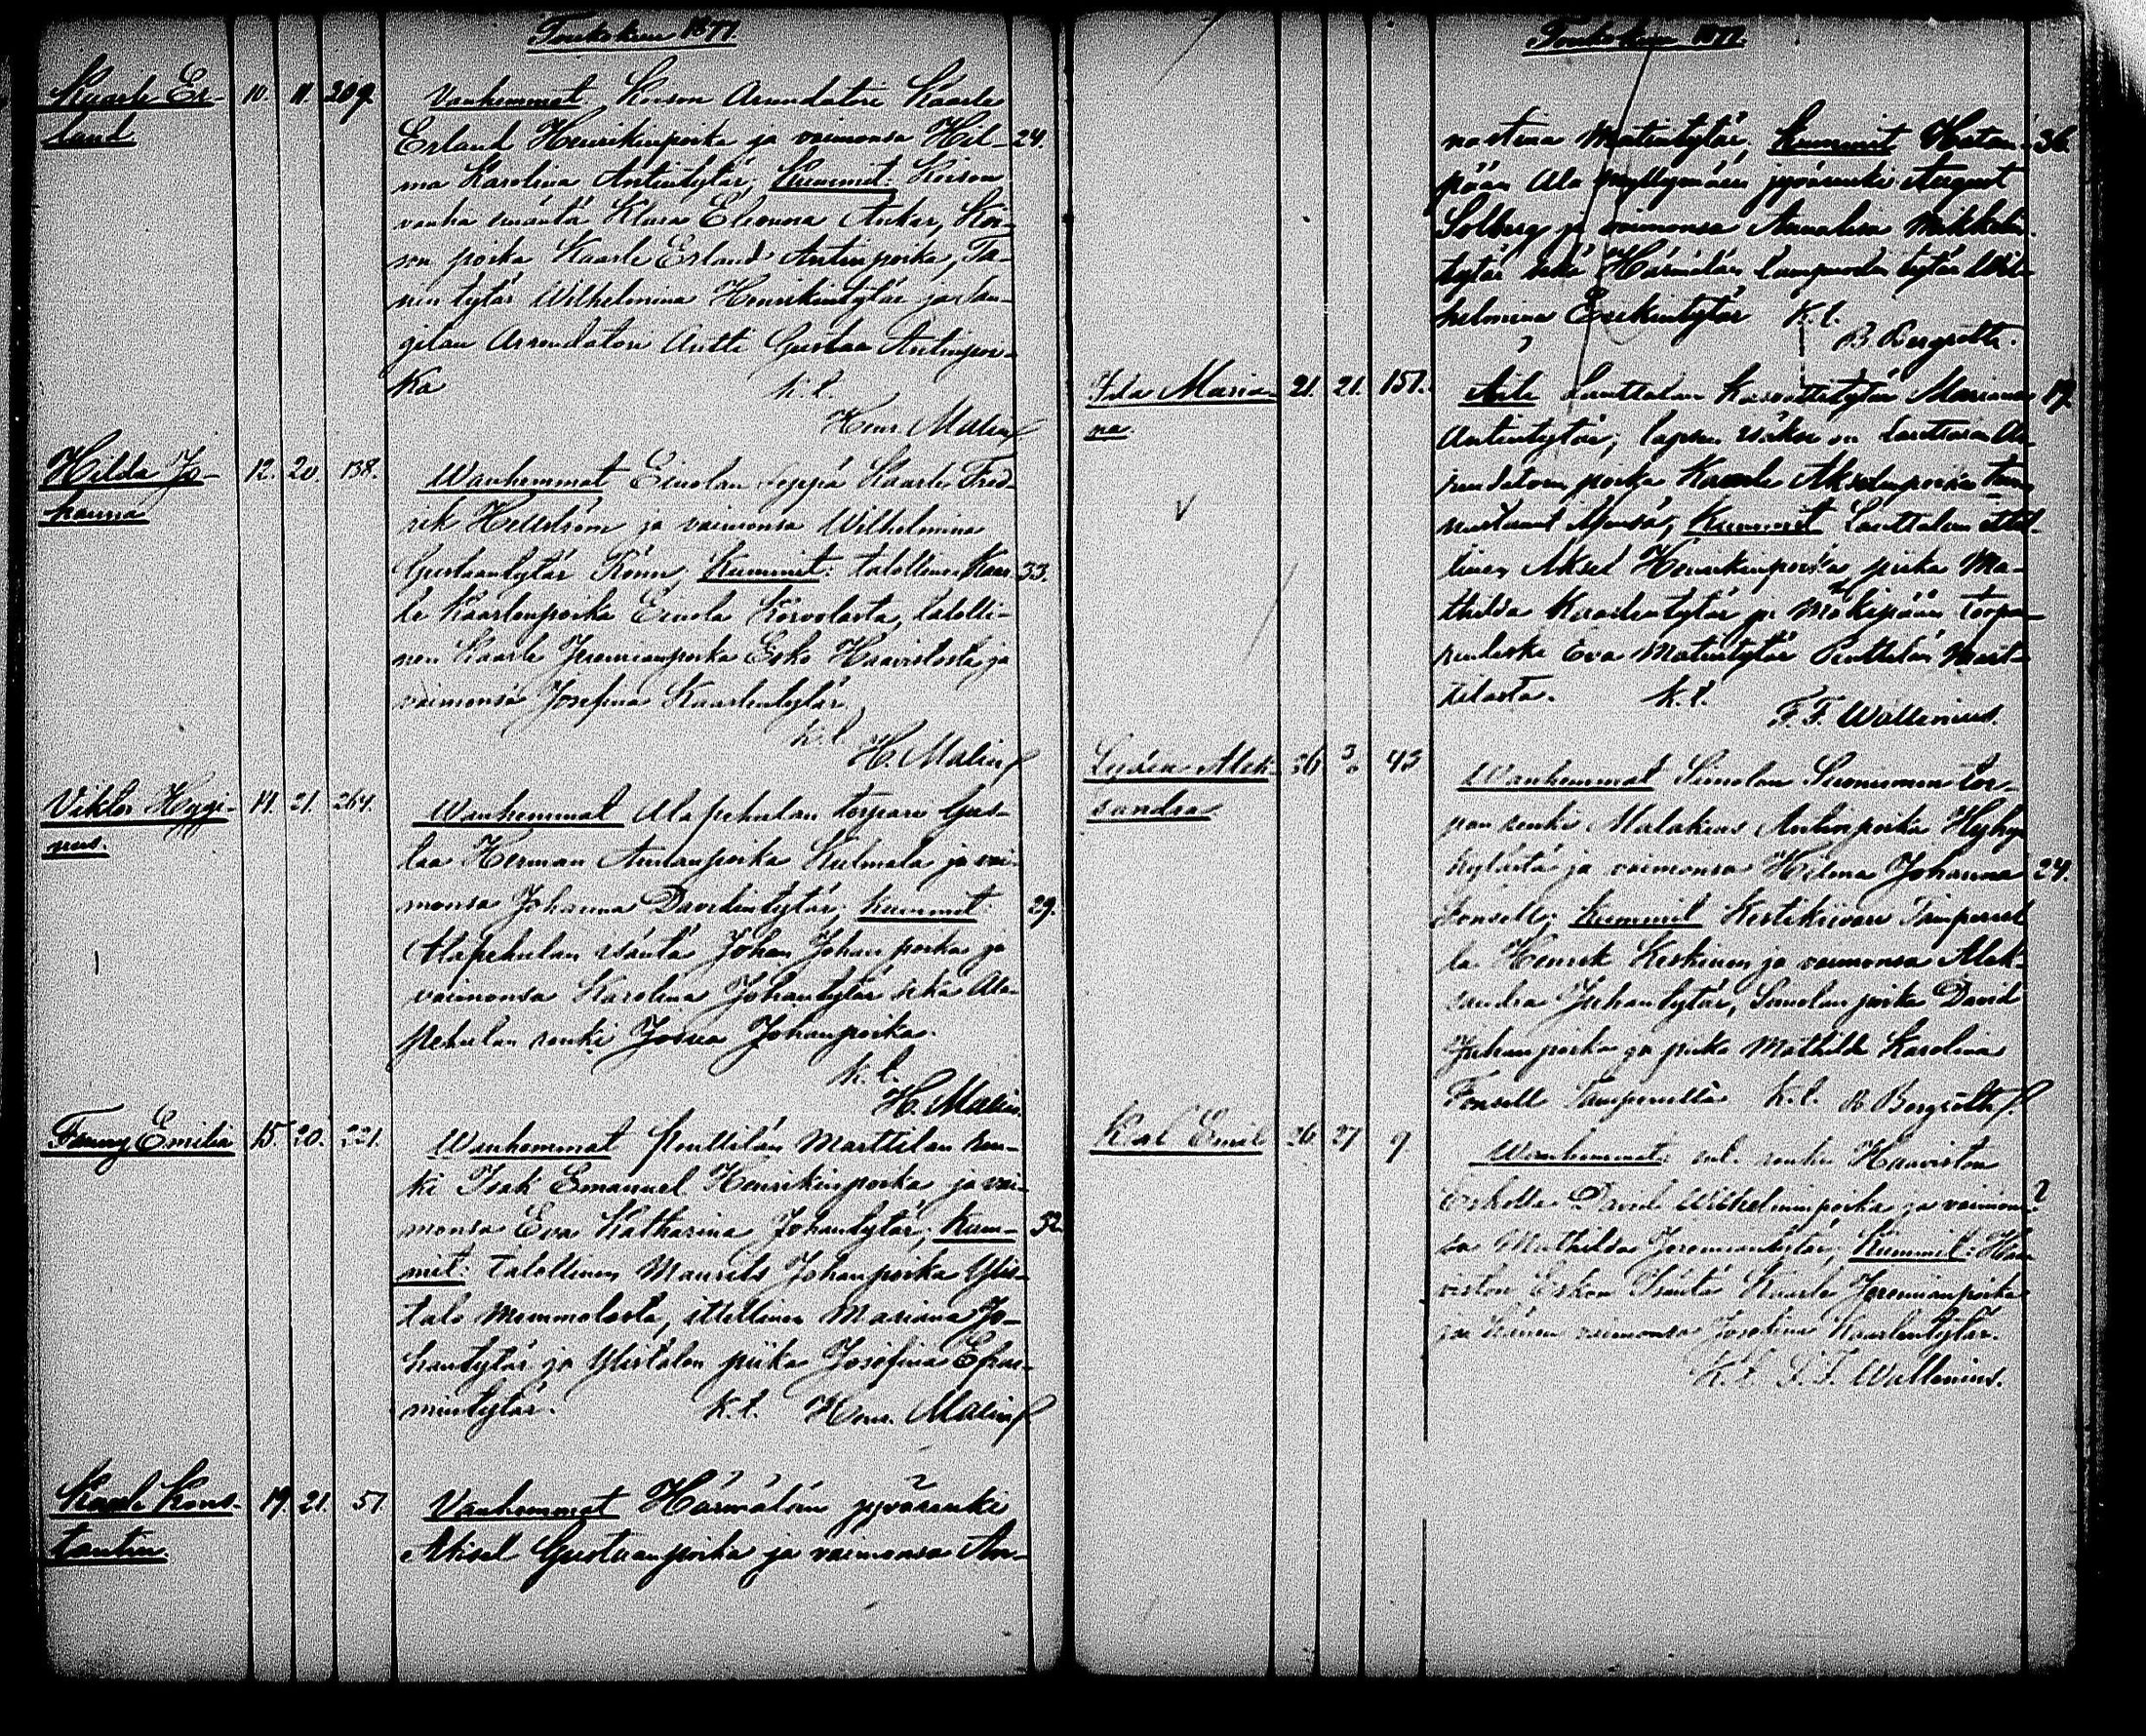 Toukokuu 1877.
Kaarle Er-
land
10. 11. 209.
Vanhemmat Korson Arendatori Kaarle
Erland Henrikinpoika ja vaimonsa Hil- 24.
ma Karolina Antintytär; Kummit: Korson
vanha emäntä Klara Eleonora Anker, Kor-
son poika Kaarle Erland Antinpoika, Ta-
nen tytär Wilhelmina Henrikintytär ja
gilan Arrendatori Antti Gustaa Antinpoi-
ka k.t.
Henr. Malin
Hilda Jo-
hanna
12. 20. 138.
Wanhemmat Einolan Seppä Kaarle Fred-
rik Hellström ja vaimonsa Wilhelmina
Gustaantytär Könn; Kummit: talollinen Kaar- 33.
le Kaarlenpoika Einola Korvolasta, talolli-
nen Kaarle Jeremianpoika Esko Haavistosta ja
vaimonsa Josefina Kaarlentytär
k.t.
H. Malin
Viktor Hygi-
nus.
14. 21. 264.
Wanhemmat Alapehulan torpari Gus-
taa Herman Antinpoika Kulmala ja vai-
monsa Johanna Davidintytär; Kummit: 29.
Alapehulan isäntä Johan Johanpoika ja
vaimonsa Karolina Johantytär sekä Ala-
pehulan renki Josua Johanpoika.
k.t.
H. Malin.
Fanny Emilia
15. 20. 221.
Wanhemmat Penttilän Marttilan ren-
ki Isak Emanuel Henrikinpoika ja vai-
monsa Eva Katharina Johantytär; Kum- 32
mit: talollinen Maurits Johanpoika Ylis-
talo Mommolasta, ittellinen Mariana Jo-
hantytär ja Ylistalon piika Josefina Efrai-
mintytär. k.t. Henr. Malin
Kaarle Kons-
tantin.
19. 21. 51
Vanhemmat Härmälän jyvärenki
Aksel Gustaanpoika ja vaimonsa An-
Toukokuu 1877.
nastina Matintytär. Kummit Hatan- 36.
pään Ala myllymäen jyvärenki August
Solberg ja vaimonsa Annalisa Mikkelin-
tytär sekä Härmälän lampuodin tytär Wil-
helmina Erikintytär k.t.
B. Bergroth.
Ida Maria-
na.
21. 21. 151.
Äiti Lauttalan Kasvattitytär Mariana 19.
Antintytär; lapsen isäksi on Arrendatorin poika Kaarle Akselinpoika tun-
nustanut itsensä; Kummit Lauttalan ittel-
linen Aksel Henrikinpoika, piika Ma-
thilda Kaarlentytär ja Mäkipään torpan
leski Eva Matintytär Penttilän Mart-
tilasta. k.t.
F. F. Wallenius.
Lydia Alek-
sandra
26 3/6 43
Wanhemmat Simolan Suonumon tor-
pan renki Malakias Antinpoika Hyhy-
kylästä ja vaimonsa Hilma Johanna 24.
Fonsell; Kummit Kestikievari Tampereel-
la Henrik Keskinen ja vaimonsa Alek-
sandra Juhantytär, Simolan poika David
Juhanpoika ja piika Mathilda Karolina
Fonsell Tampereella k.t. B. Bergroth
Karl Emil
26 27 9
Wanhemmat: ent. renki Haaviston
Eskolta David Wilhelminpoika ja vaimon- ?
sa Mathilda Jeremiantytär; Kummit: Haa-
viston Eskon Isäntä Kaarle Jeremianpoika
ja hänen vaimonsa Josefina Kaarlentytär.
K.t. F. F. Wallenius.